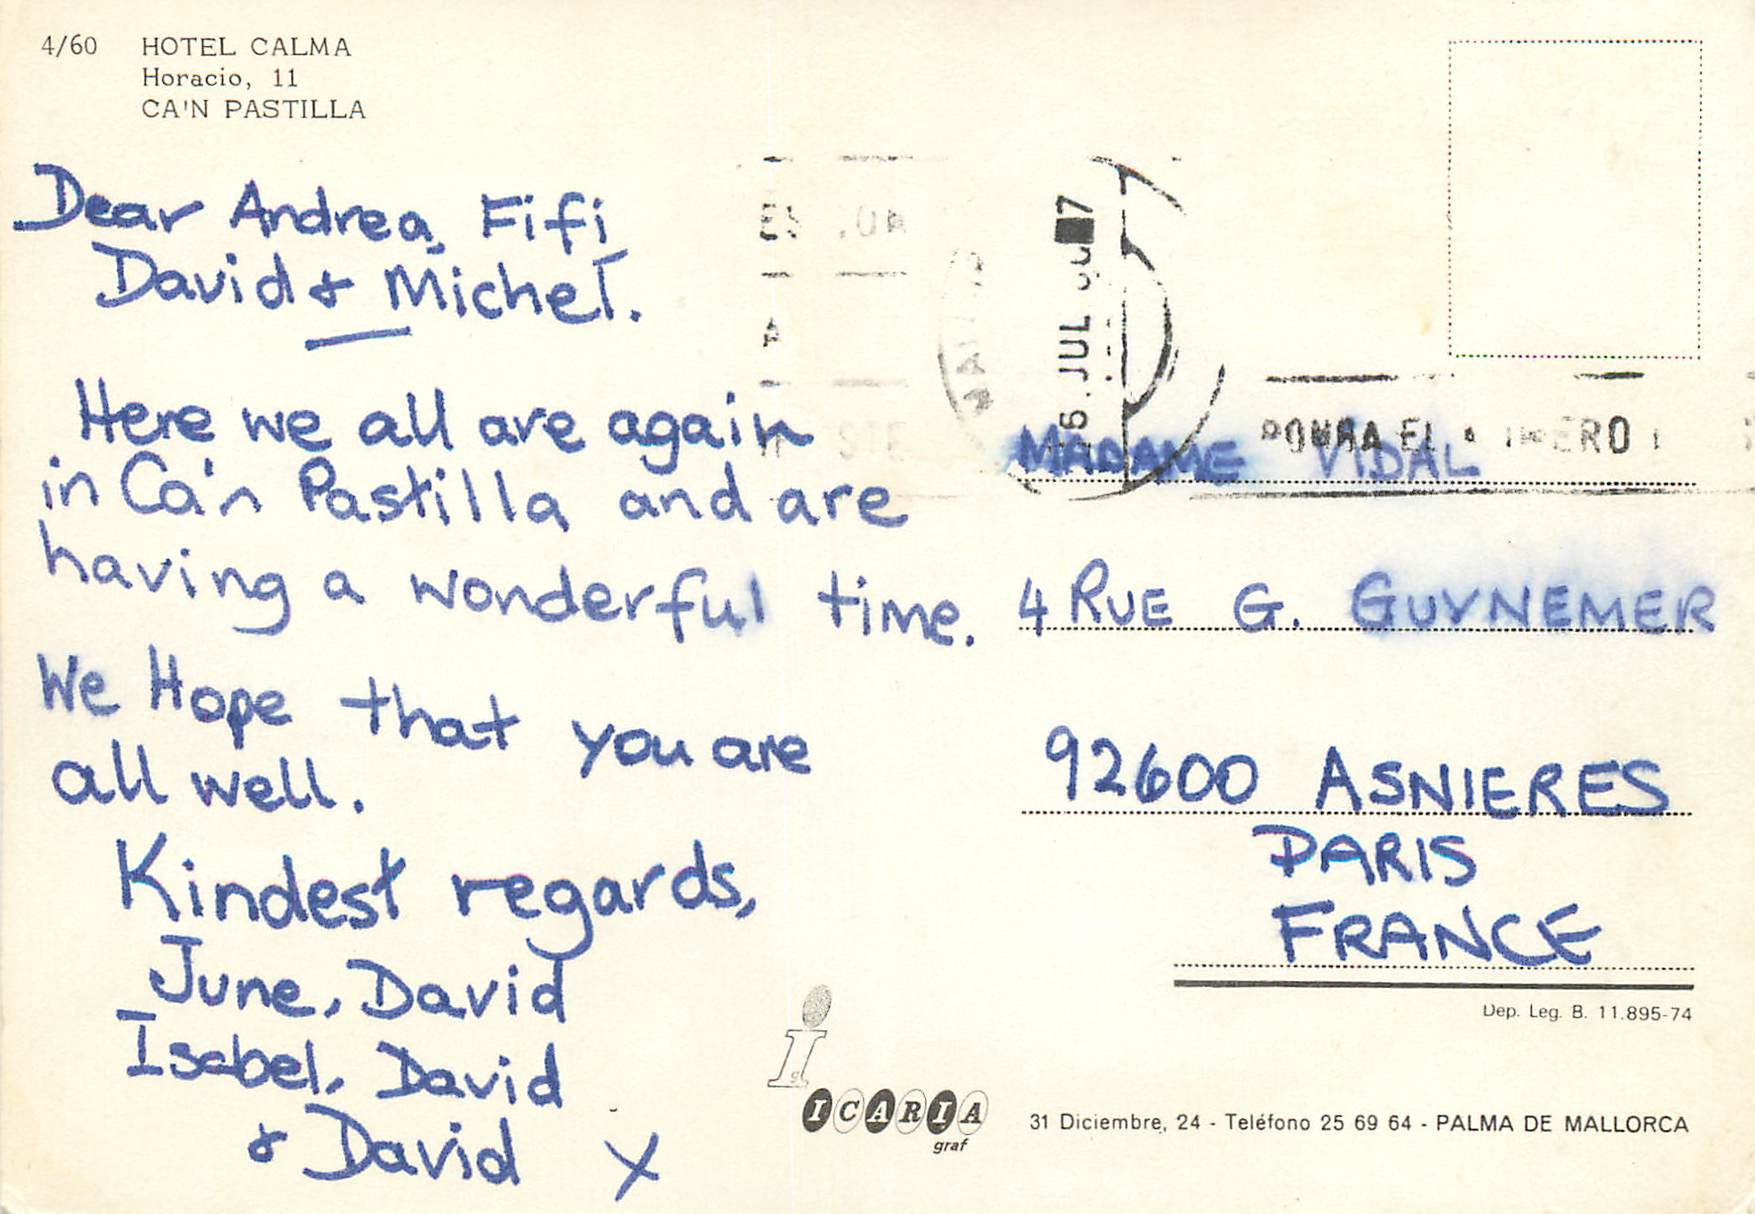 4/60 HOTEL CALMA
Horacio, 11
CA'N PASTILLA
Dear Andrea, Fifi
David & Michel.
Here we all are again
in Ca'n Pastilla and are
having a wonderful time.
We Hope that you are
all well.
Kindest regards,
June, David
Isabel, David
& David X
6. JUL
PONGA EL
MADAME VIDAL
4 RUE G. GUYNEMER
92600 ASNIERES
PARIS
FRANCE
Dep. Leg. B. 11.895-74
ICARIA
graf
31 Diciembre, 24 - Teléfono 25 69 64 - PALMA DE MALLORCA